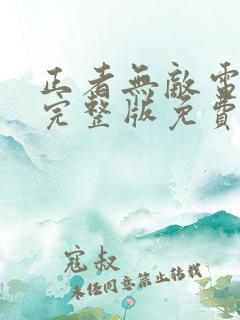 正者無敵電
完整版免費
寇叔
未經同意禁止轉載